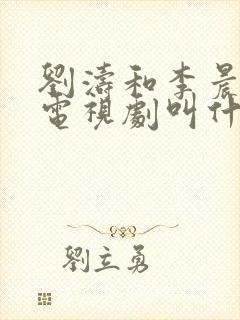 劉濤和李晨
電視劇叫什
劉立勇